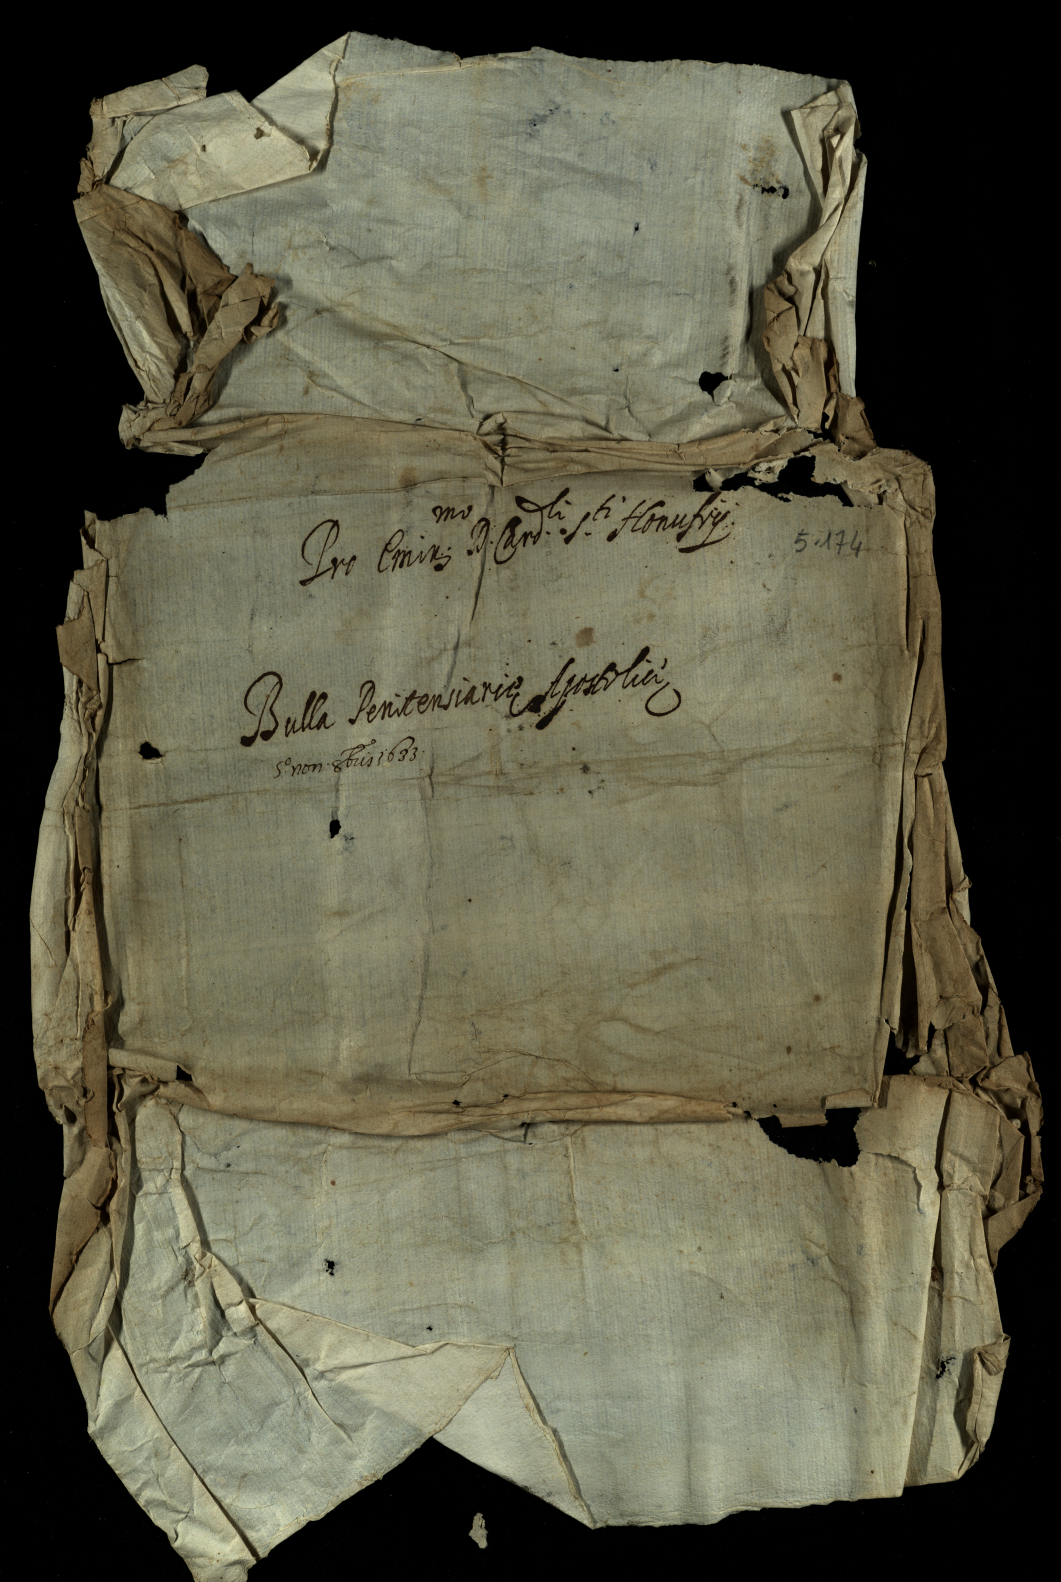 Pro Emin.mo D. Card.li S.ti Honufrij
5.174
Bulla Penitensiarię Apostolicę
5.o non. 8bris 1633.